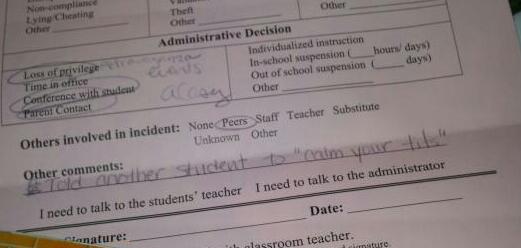 Non-compliance
Lying/Cheating
Other
Theft
Other
Other
Administrative Decision
Loss of privilege
events
Time in office
Conference with student access
Parent Contact
Individualized instruction
In-school suspension ( hours/ days)
Out of school suspension ( days)
Other
Others involved in incident: None Peers Staff Teacher Substitute
Unknown Other
Other comments:
Told another student to "mlm your tits"
I need to talk to the students' teacher I need to talk to the administrator
Signature:
Date:
classroom teacher.
signature.